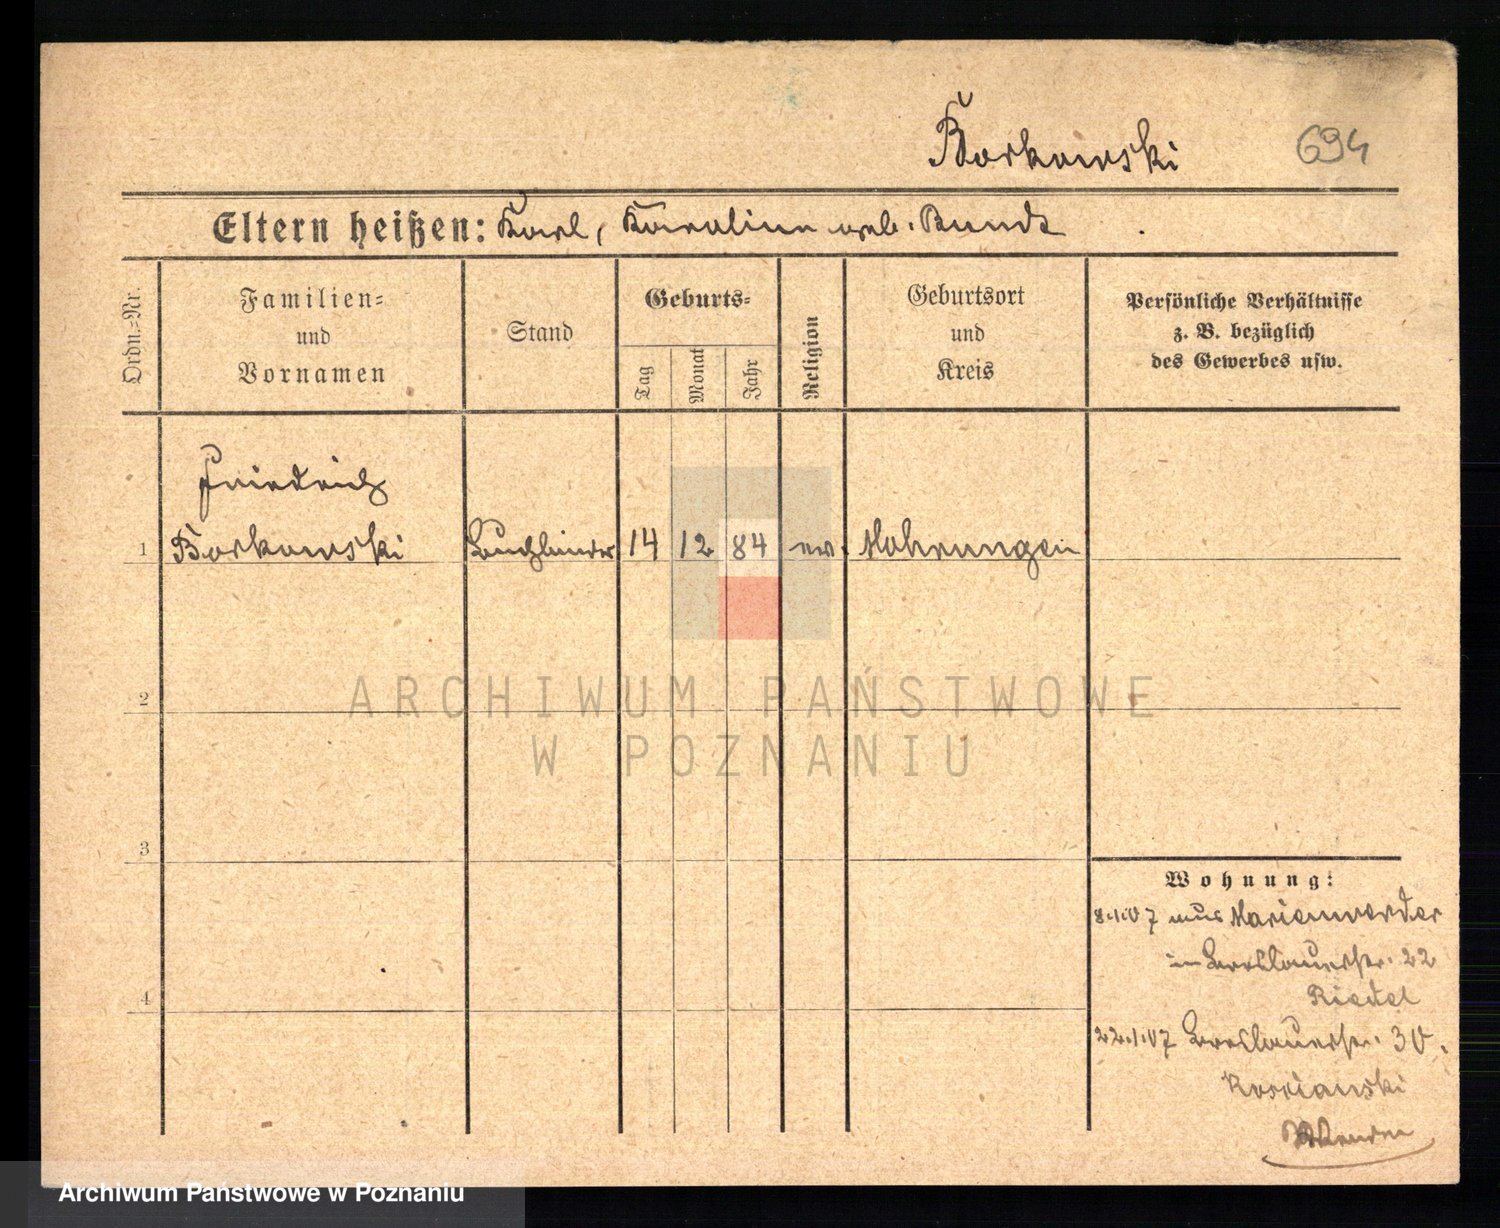 Borkowski
694
Eltern heißen: Karl, Karoline geb. Bundt
Ordn.=Nr.
Familien=
und
Vornamen
Stand
Geburts=
Tag
Monat
Jahr
Religion
Geburtsort
und
Kreis
Persönliche Verhältnisse
z. B. bezüglich
des Gewerbes usw.
Friedrich
1 Borkowski Buchbinder 14 12 84 ev. Mohrungen
2
3
4
ARCHIWUM PAŃSTWOWE
W POZNANIU
Wohnung:
8.1.07 aus Marienwerder
in Breslauerstr. 22
Riedel
22.1.07 Breslauerstr. 30.
Archiwum Państwowe w Poznaniu